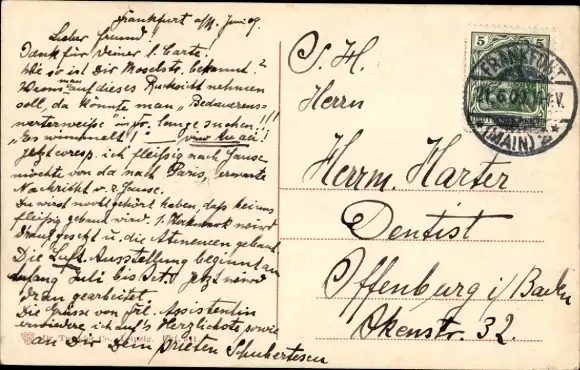 Frankfurt a/M. Juni 09.
Lieber Freund!
Dank für Deiner l. Carte!
Wie so ist Dir Moselstr. bekannt?
Wenn man auf dieses Rücksicht nehmen
soll, da könnte man "Bedauerens-
werterweise" lange suchen!!!
"Es wimmelt!"
Jetzt corresp. ich fleißig nach
möchte von da nach Paris, erwarte
Nachricht v. z. Hause.
Du wirst wohl gehört haben, daß bei uns
fleißig gebaut wird. 1. wird
drauf gesetzt u. die gebaut
Die Luft-Ausstellung beginnt an
Anfang Juli bis Oct. Jetzt wird
dran gearbeitet.
Die Grüsse von Frl. Assistentin
erwiedere ich auf's Herzlichste, sowie
an Dir Dein
S. H.
Herrn
Herrm. Harter
Dentist
Offenburg i/Baden
Okenstr. 32.
5 5
FRANKFURT
21.6.09
(MAIN)